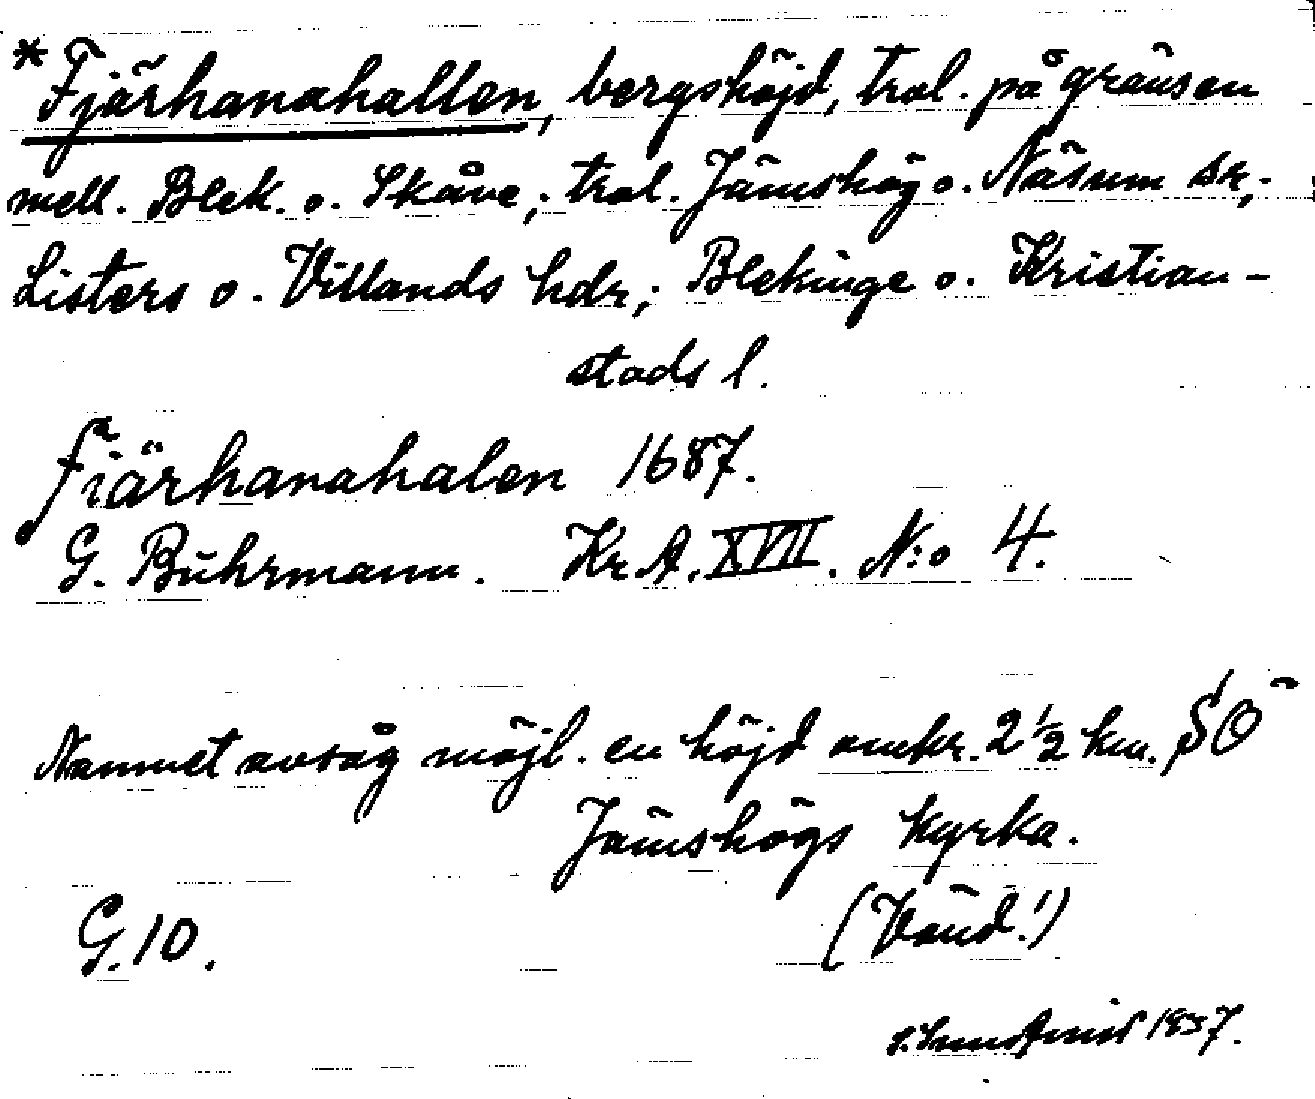 *Fjärhanahallen, bergshöjd, trol. på gränsen
mell. Blek. o. Skåne; trol. Jämshög o. Näsum sr,
Listers o. Villands hdr; Blekinge o. Kristian-
stads l.
Fiärhanahalen 1687.
G. Buhrmann. Kr. A. XVII. N:o 4.
Namnet avsåg möjl. en höjd omkr. 2 1/2 km. SÖ
Jämshögs kyrka.
G. 10. (Vänd!)
1937.